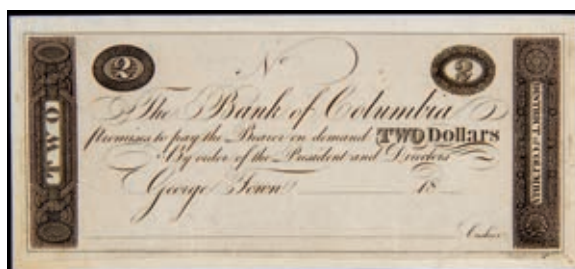 2
No
2
TWO
The Bank of Columbia
Promises to pay the Bearer on demand TWO Dollars
By order of the President and Directors
George Town 18
Cashier
DISTRICT of COLUMBIA